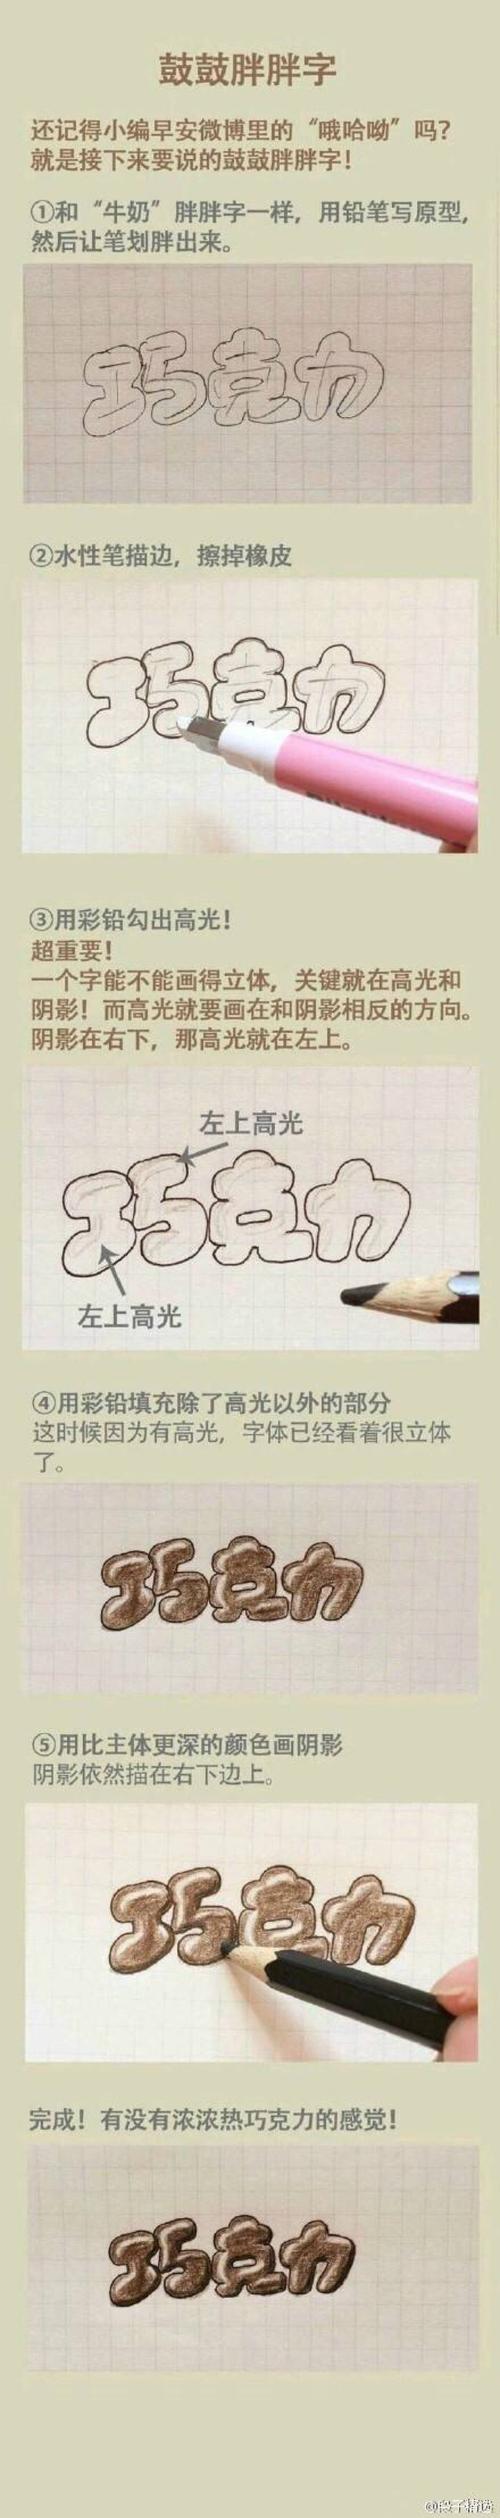 鼓鼓胖胖字
还记得小编早安微博里的“哦哈呦”吗？
就是接下来要说的鼓鼓胖胖字！
①和“牛奶”胖胖字一样，用铅笔写原型，
然后让笔划胖出来。
巧克力
②水性笔描边，擦掉橡皮
巧克力
③用彩铅勾出高光！
超重要！
一个字能不能画得立体，关键就在高光和
阴影！而高光就要画在和阴影相反的方向。
阴影在右下，那高光就在左上。
左上高光
巧克力
左上高光
④用彩铅填充除了高光以外的部分
这时候因为有高光，字体已经看着很立体
了。
巧克力
⑤用比主体更深的颜色画阴影
阴影依然描在右下边上。
巧克力
完成！有没有浓浓热巧克力的感觉！
巧克力
@段子精选